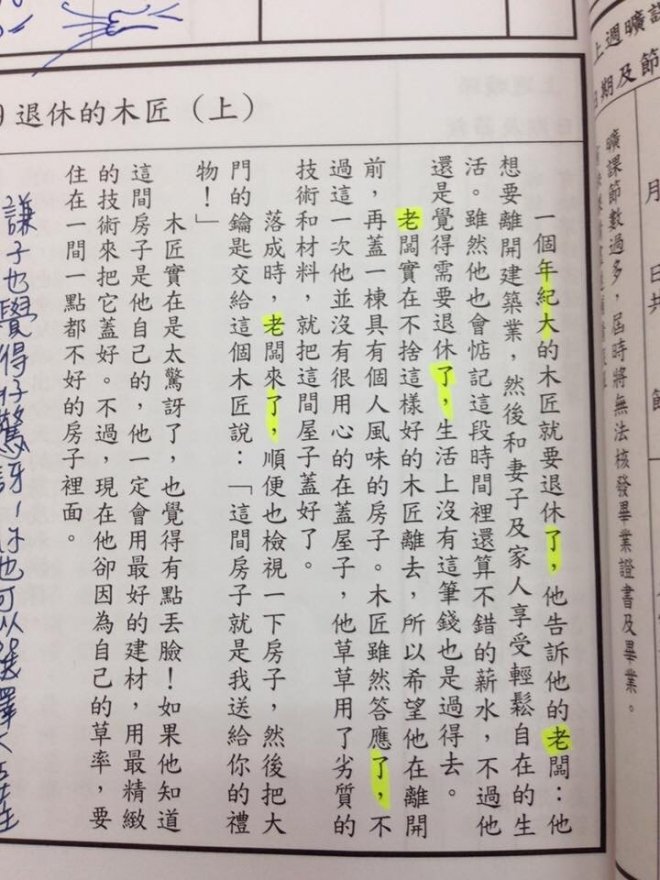 上週曠
日期及節
月
日共
節
曠課節數過多，屆時將無法核發畢業證書及畢業。
退休的木匠（上）
一個年紀大的木匠就要退休了，他告訴他的老闆：他
想要離開建築業，然後和妻子及家人享受輕鬆自在的生
活。雖然他也會惦記這段時間裡還算不錯的薪水，不過他
還是覺得需要退休了，生活上沒有這筆錢也是過得去。
老闆實在不捨這樣好的木匠離去，所以希望他在離開
前，再蓋一棟具有個人風味的房子。木匠雖然答應了，不
過這一次他並沒有很用心的在蓋屋子，他草草用了劣質的
技術和材料，就把這間屋子蓋好了。
落成時，老闆來了，順便也檢視一下房子，然後把大
門的鑰匙交給這個木匠說：「這間房子就是我送給你的禮
物！」
木匠實在是太驚訝了，也覺得有點丟臉！如果他知道
這間房子是他自己的，他一定會用最好的建材，用最精緻
的技術來把它蓋好。不過，現在他卻因為自己的草率，要
住在一間一點都不好的房子裡面。
謙子也覺得好驚訝！也可以選擇